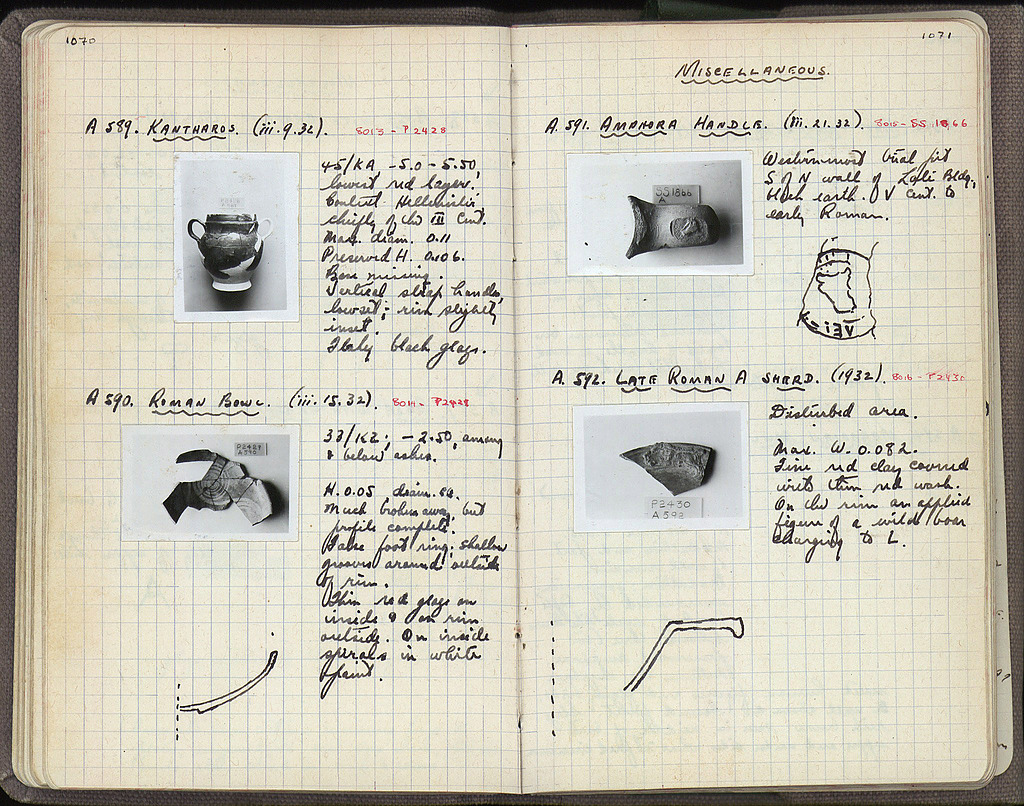 1070
A 589. KANTHAROS. (iii.9.32). 8013 - P2428
45/KA, -5.0 - 5.50,
lowest red layer.
Context Hellenistic
chiefly of the III Cent.
Max. diam. 0.11
Preserved H. 0.106.
Base missing.
Vertical strap handles,
lowset; rim slightly
inset.
Flaky black glaze.
A 590. ROMAN BOWL. (iii.15.32). 8014 - P2429
P2429
A590
33/KZ; -2.50, among
& below ashes.
H. 0.05 diam. ca.
Much broken away, but
profile complete.
False foot ring; shallow
grooves around outside
of rim.
Thin red glaze on
inside & on rim
outside. On inside
spirals in white
paint.
1071
MISCELLANEOUS.
A. 591. AMPHORA HANDLE. (iii.21.32). 8015 - SS 1866
SS1866
A
Westernmost burial pit
S of N wall of Bldg,
black earth. V Cent. to
early Roman.
A. 592. LATE ROMAN A SHERD. (1932). 8016 - P2430
P2430
A592
Disturbed area.
Max. W. 0.082.
Fine red clay covered
with thin red wash.
On the rim an applied
figure of a wild boar
charging to L.